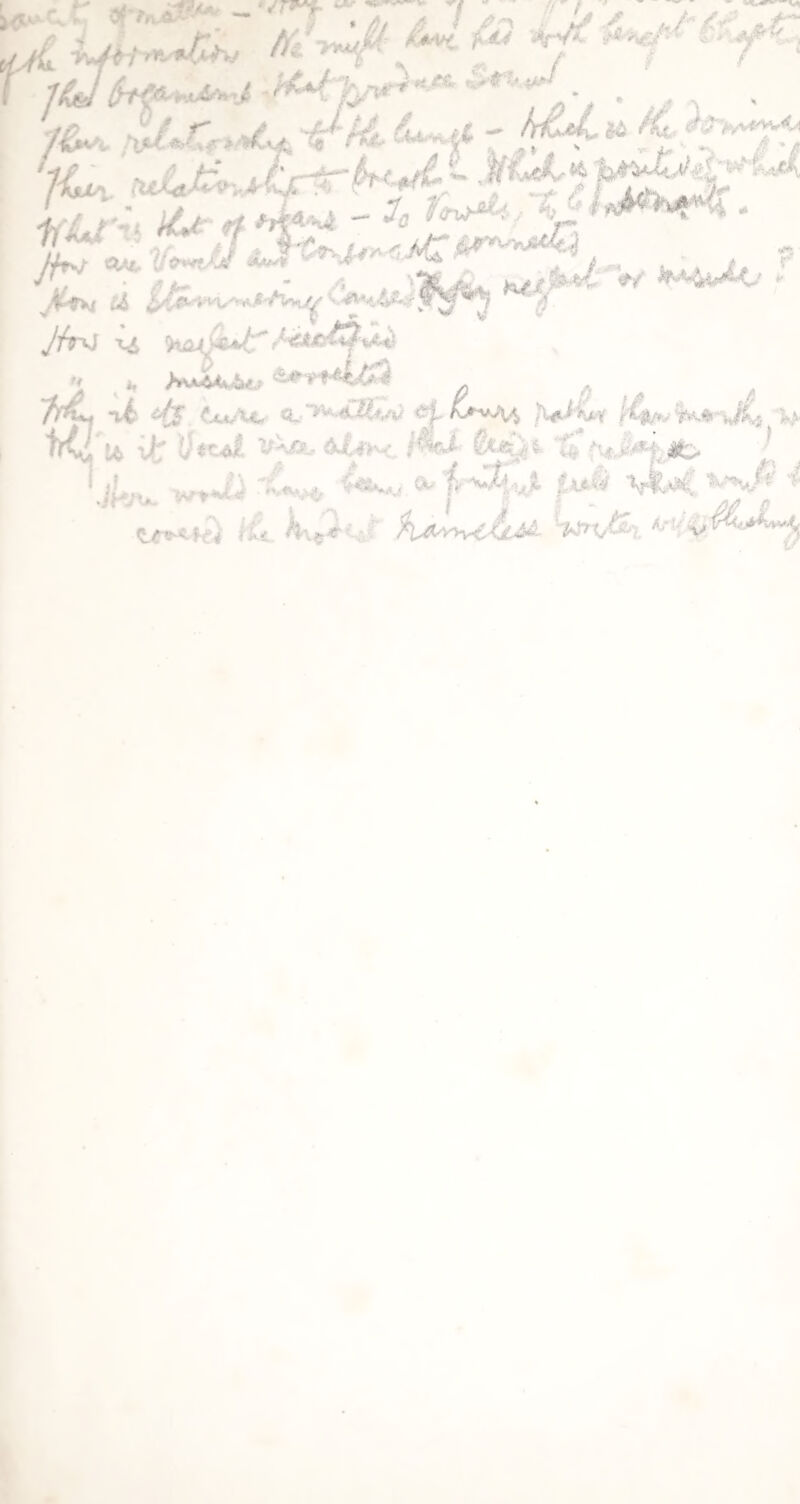 paucity of matter — Half a
of the information We might have had with benefit Chapte
The Organisms that produce Sound
Their relationship to the lungs — Which is the domina
Their relationship to breath — Which is positive? which
What is that of organs — To Vowels, to Consonants.
How are Vowels and Consonants connected
How is Stammering Caused by neglect or misuse?
How is neglect rectified
" " misuse corrected
Why is its cure a matter of hours rather than months,
Why is it Vocal vice alone that leads to relapse
Here would have been a fruitful field which would
covered the Modest Nameless writer with blushing